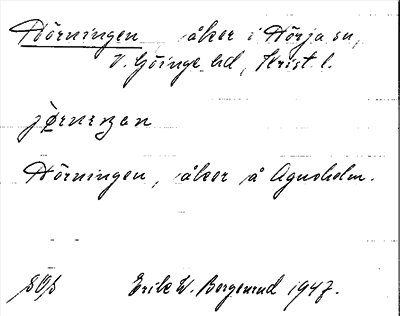 Hörningen åker i Hörja sn,
V. Göinge hd, Krist. l.
Hörningen, åker å Agnsholm.
Erik W. Bergenrud 1947.